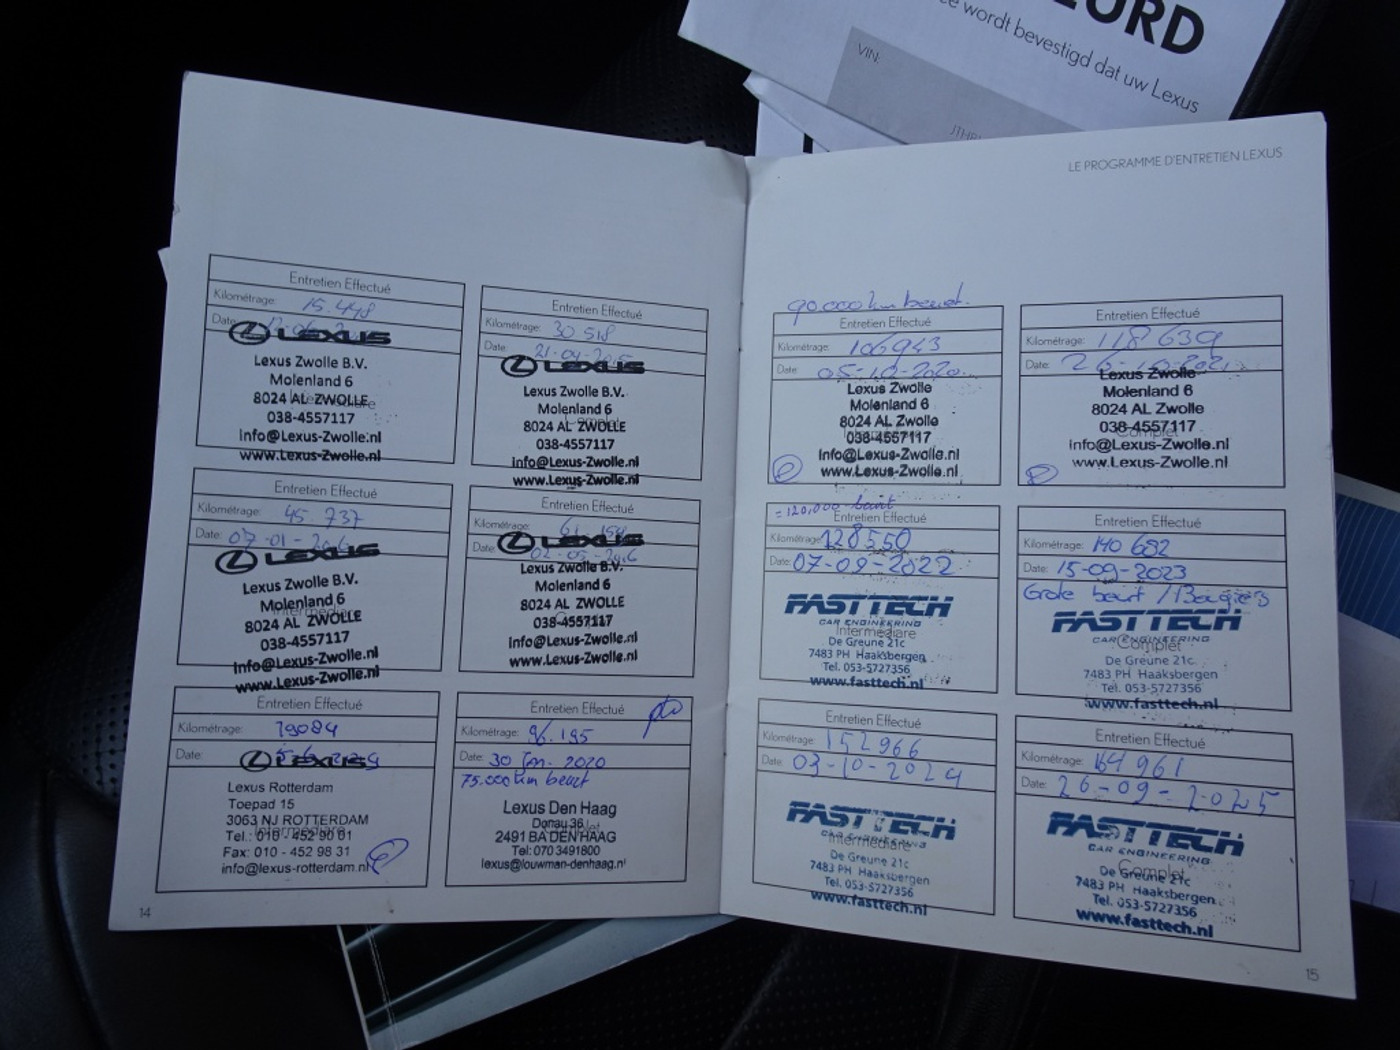 EURD
ce wordt bevestigd dat uw Lexus
VIN:
JTHB
LE PROGRAMME D'ENTRETIEN LEXUS
Entretien Effectué
Kilométrage: 15.448
Date:
LEXUS
Lexus Zwolle B.V.
Molenland 6
8024 AL ZWOLLE
038-4557117
info@Lexus-Zwolle.nl
www.Lexus-Zwolle.nl
Entretien Effectué
Kilométrage: 30 518
Date: 21-04-2015
LEXUS
Lexus Zwolle B.V.
Molenland 6
8024 AL ZWOLLE
038-4557117
info@Lexus-Zwolle.nl
www.Lexus-Zwolle.nl
Entretien Effectué
Kilométrage: 45 737
Date: 07-01-2016
LEXUS
Lexus Zwolle B.V.
Molenland 6
Intermédiaire
8024 AL ZWOLLE
038-4557117
info@Lexus-Zwolle.nl
www.Lexus-Zwolle.nl
Entretien Effectué
Kilométrage: 61
Date: 02-05-2016
LEXUS
Lexus Zwolle B.V.
Molenland 6
8024 AL ZWOLLE
038-4557117
info@Lexus-Zwolle.nl
www.Lexus-Zwolle.nl
Entretien Effectué
Kilométrage: 79084
Date:
LEXUS
Lexus Rotterdam
Toepad 15
3063 NJ ROTTERDAM
Intermédiaire
Tel.: 010 - 452 90 01
Fax: 010 - 452 98 31
info@lexus-rotterdam.nl
Entretien Effectué
Kilométrage: 96.195
Date: 30 Jan. 2020
75.000 km beurt
Lexus Den Haag
Donau 36
Complet
2491 BA DEN HAAG
Tel: 070 3491800
lexus@louwman-denhaag.nl
14
90.000 km beurt.
Entretien Effectué
Kilométrage: 106943
Date: 05-10-2020
Lexus Zwolle
Molenland 6
8024 AL Zwolle
038-4557117
info@Lexus-Zwolle.nl
www.Lexus-Zwolle.nl
Entretien Effectué
Kilométrage: 118639
Date: 26-10-2021
Lexus Zwolle
Molenland 6
8024 AL Zwolle
038-4557117
Complet
info@Lexus-Zwolle.nl
www.Lexus-Zwolle.nl
= 120.000 beurt
Entretien Effectué
Kilométrage: 128550
Date: 07-09-2022
FASTTECH
CAR ENGINEERING
Intermédiaire
De Greune 21c
7483 PH Haaksbergen
Tel. 053-5727356
www.fasttech.nl
Entretien Effectué
Kilométrage: 140 682
Date: 15-09-2023
Grote beurt / Bougies
FASTTECH
CAR ENGINEERING
Complet
De Greune 21c
7483 PH Haaksbergen
Tel. 053-5727356
www.fasttech.nl
Entretien Effectué
Kilométrage: 152966
Date: 03-10-2024
FASTTECH
CAR ENGINEERING
Intermédiaire
De Greune 21c
7483 PH Haaksbergen
Tel. 053-5727356
www.fasttech.nl
Entretien Effectué
Kilométrage: 164961
Date: 26-09-2025
FASTTECH
CAR ENGINEERING
Complet
De Greune 21c
7483 PH Haaksbergen
Tel. 053-5727356
www.fasttech.nl
15